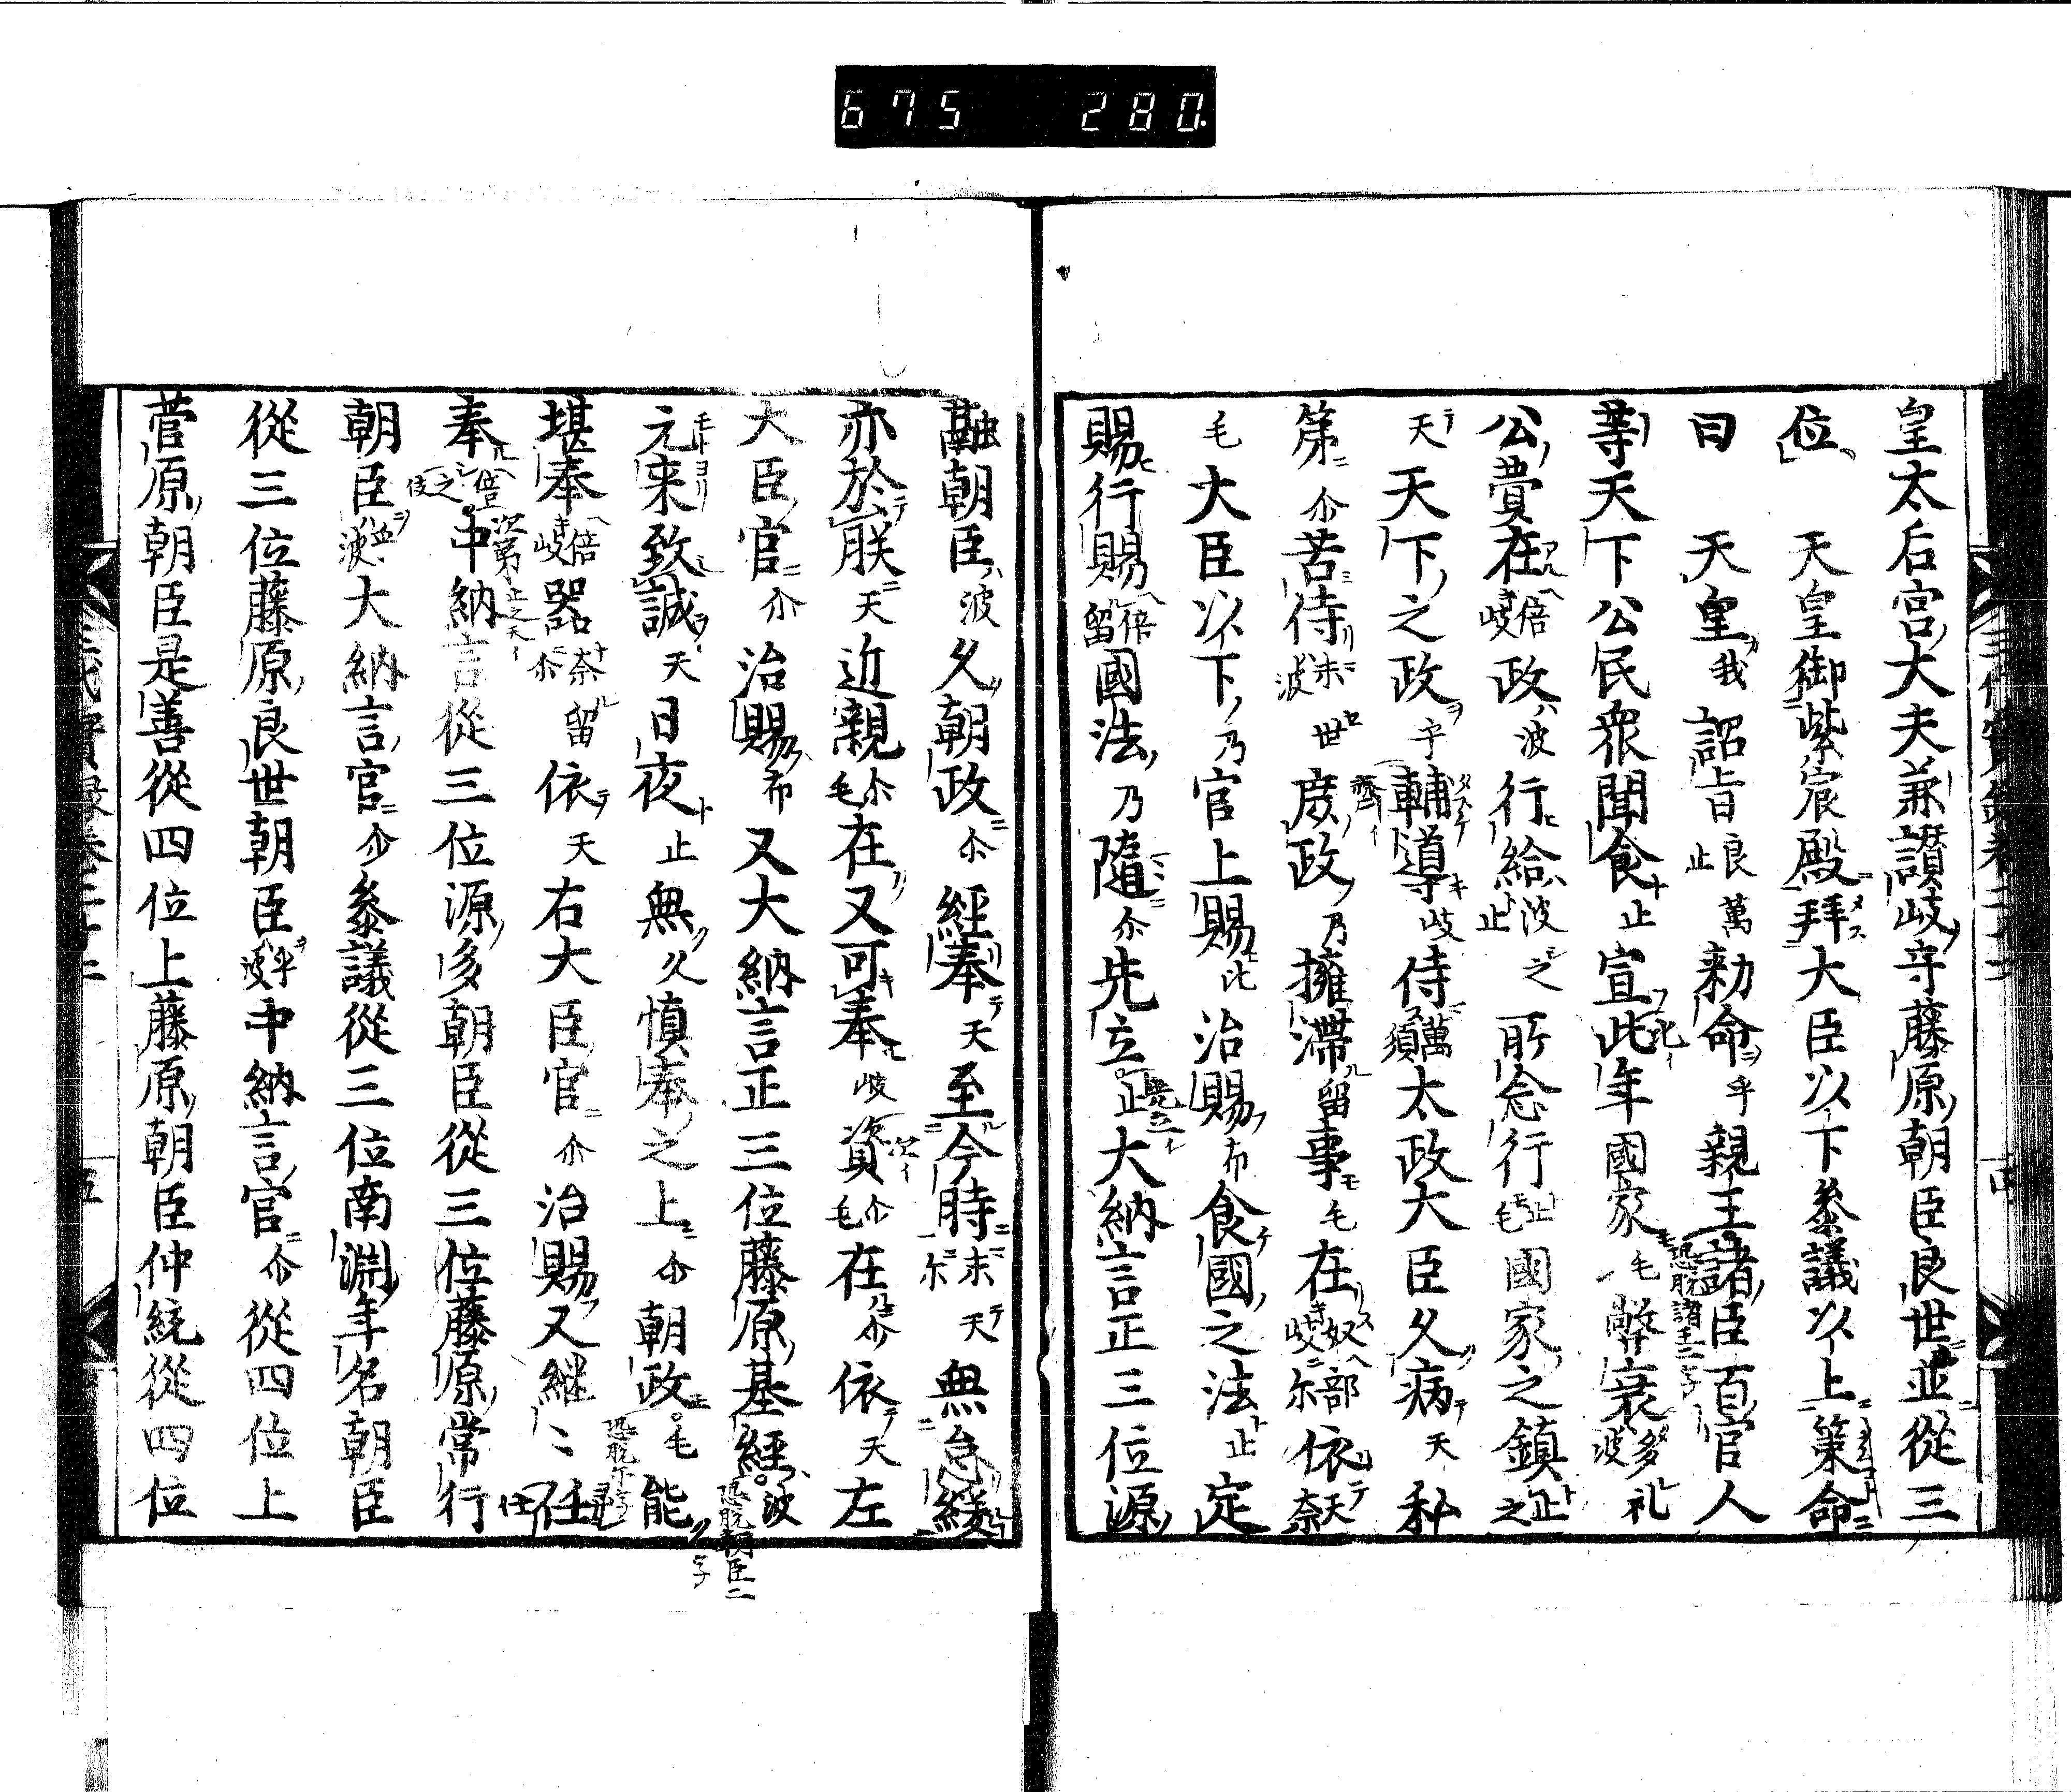 675 280
皇太后宮大夫兼讃岐守藤原朝臣良世並從三
位天皇御紫宸殿拜大臣以下叅議以上策命
曰天皇我詔旨良萬止勅命乎親王諸臣百官人
等天下公民衆聞食止宣此年國家毛弊衰多礼波
公費在倍岐政波行給波止之所念行止毛國家之鎮止之
天天下之政乎輔導岐侍萬須太政大臣久病天私
第尒苦侍未波世庻政乃擁滯留事毛在奴部岐尒依天奈
毛大臣以下乃官上賜比治賜布食國之法止定
賜行賜倍留國法乃隨尒先立正大納言正三位源
融朝臣波久朝政尒經奉天至今時末尒天無怠緩
亦於朕天近親尒毛在又可奉岐資尒毛在尒依天左
大臣官尒治賜布又大納言正三位藤原基經波
元来致誠天日夜止無久慎奉之上尒朝政毛能
堪奉倍岐器奈留尒依天右大臣官尒治賜又継〻任
奉倍之中納言從三位源多朝臣從三位藤原常行
朝臣波大納言官尒叅議從三位南淵年名朝臣
從三位藤原良世朝臣乎波中納言官尒從四位上
菅原朝臣是善從四位上藤原朝臣仲統從四位